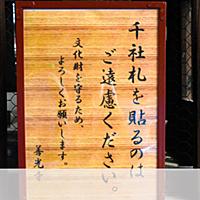 千社札を貼るのは
ご遠慮ください。
文化財を守るため、
よろしくお願いします。
善光寺